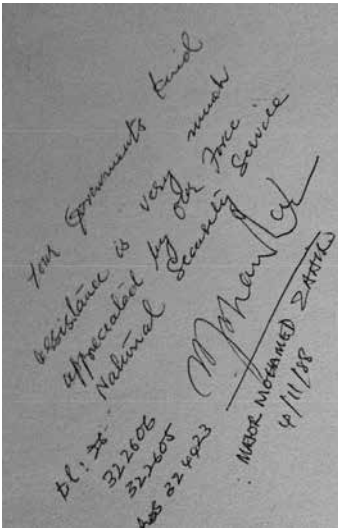 Your Governments kind
assistance is very much
appreciated by our Force
National Security Service
MAJOR MOHAMED ZAHIR
4/11/88
322606
322605
324923